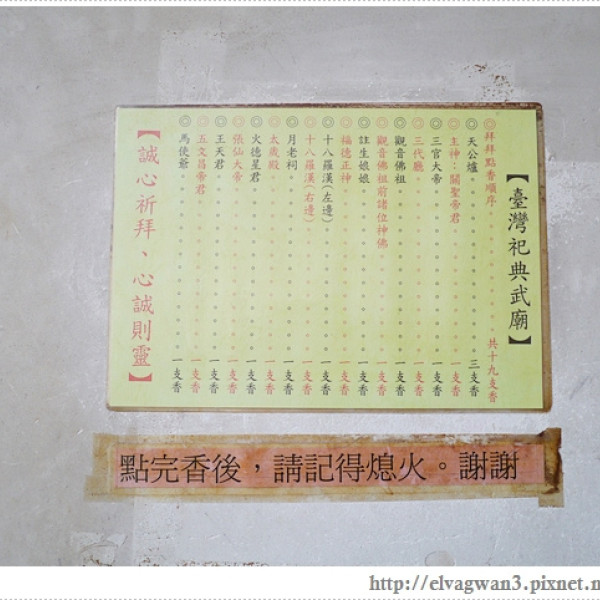 【臺灣祀典武廟】
◎拜拜點香順序 共十九支香
◎天公爐 三支香
◎主神：關聖帝君 一支香
◎三官大帝 一支香
◎三代廳 一支香
◎觀音佛祖 一支香
◎觀音佛祖前諸位神佛 一支香
◎註生娘娘 一支香
◎福德正神 一支香
◎十八羅漢(左邊) 一支香
◎十八羅漢(右邊) 一支香
◎月老祠 一支香
◎太歲殿 一支香
◎火德星君 一支香
◎張仙大帝 一支香
◎王天君 一支香
◎五文昌帝君 一支香
◎馬使爺 一支香
【誠心祈拜、心誠則靈】
點完香後，請記得熄火。謝謝
http://elvagwan3.pixnet.ne